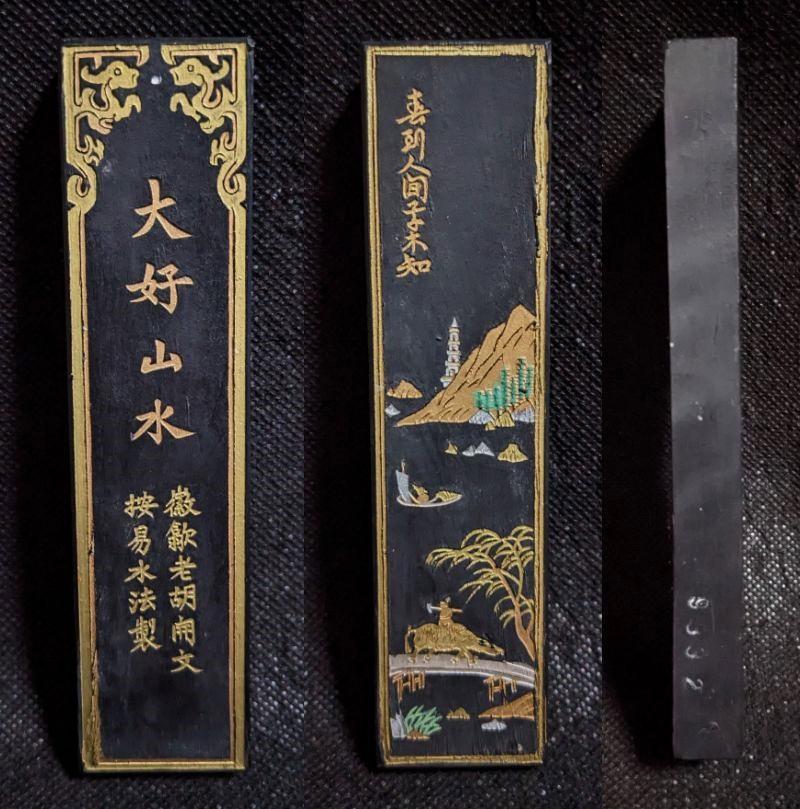 大好山水
徽歙老胡開文
按易水法製
春到人間草木知